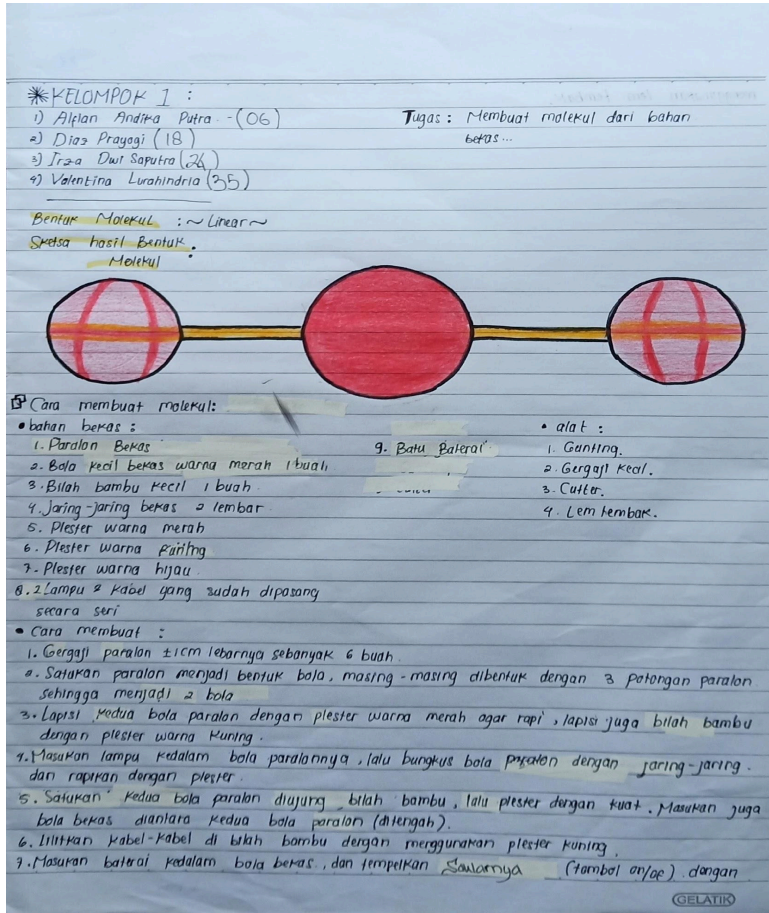 *KELOMPOK 1 :
1) Alfian Andika Putra -(06)
2) Diaz Prayogi (18)
3) Irza Dwi Saputra (24)
4) Valentina Lurahindria (35)
Tugas : Membuat molekul dari bahan
bekas...
Bentuk Molekul : ~ Linear ~
Sketsa hasil Bentuk :
Molekul
Cara membuat molekul:
• bahan bekas :
1. Paralon Bekas
2. Bola kecil bekas warna merah 1 buah
3. Bilah bambu kecil 1 buah.
4. Jaring-jaring bekas 2 lembar
5. Plester warna merah
6. Plester warna kuning
7. Plester warna hijau
8. 2 Lampu & kabel yang sudah dipasang
secara seri
9. Batu Baterai
• alat :
1. Gunting.
2. Gergaji kecil.
3. Cutter.
4. Lem tembak.
• Cara membuat :
1. Gergaji paralon ±1cm lebarnya sebanyak 6 buah.
2. Satukan paralon menjadi bentuk bola, masing-masing dibentuk dengan 3 potongan paralon
sehingga menjadi 2 bola
3. Lapisi kedua bola paralon dengan plester warna merah agar rapi, lapisi juga bilah bambu
dengan plester warna kuning.
4. Masukan lampu kedalam bola paralonnya, lalu bungkus bola paralon dengan jaring-jaring.
dan rapikan dengan plester.
5. Satukan kedua bola paralon diujung bilah bambu, lalu plester dengan kuat. Masukan juga
bola bekas diantara kedua bola paralon (ditengah).
6. Lilitkan kabel-kabel di bilah bambu dengan menggunakan plester kuning.
7. Masukan baterai kedalam bola bekas, dan tempelkan Saularnya (tombol on/of) dengan
GELATIK